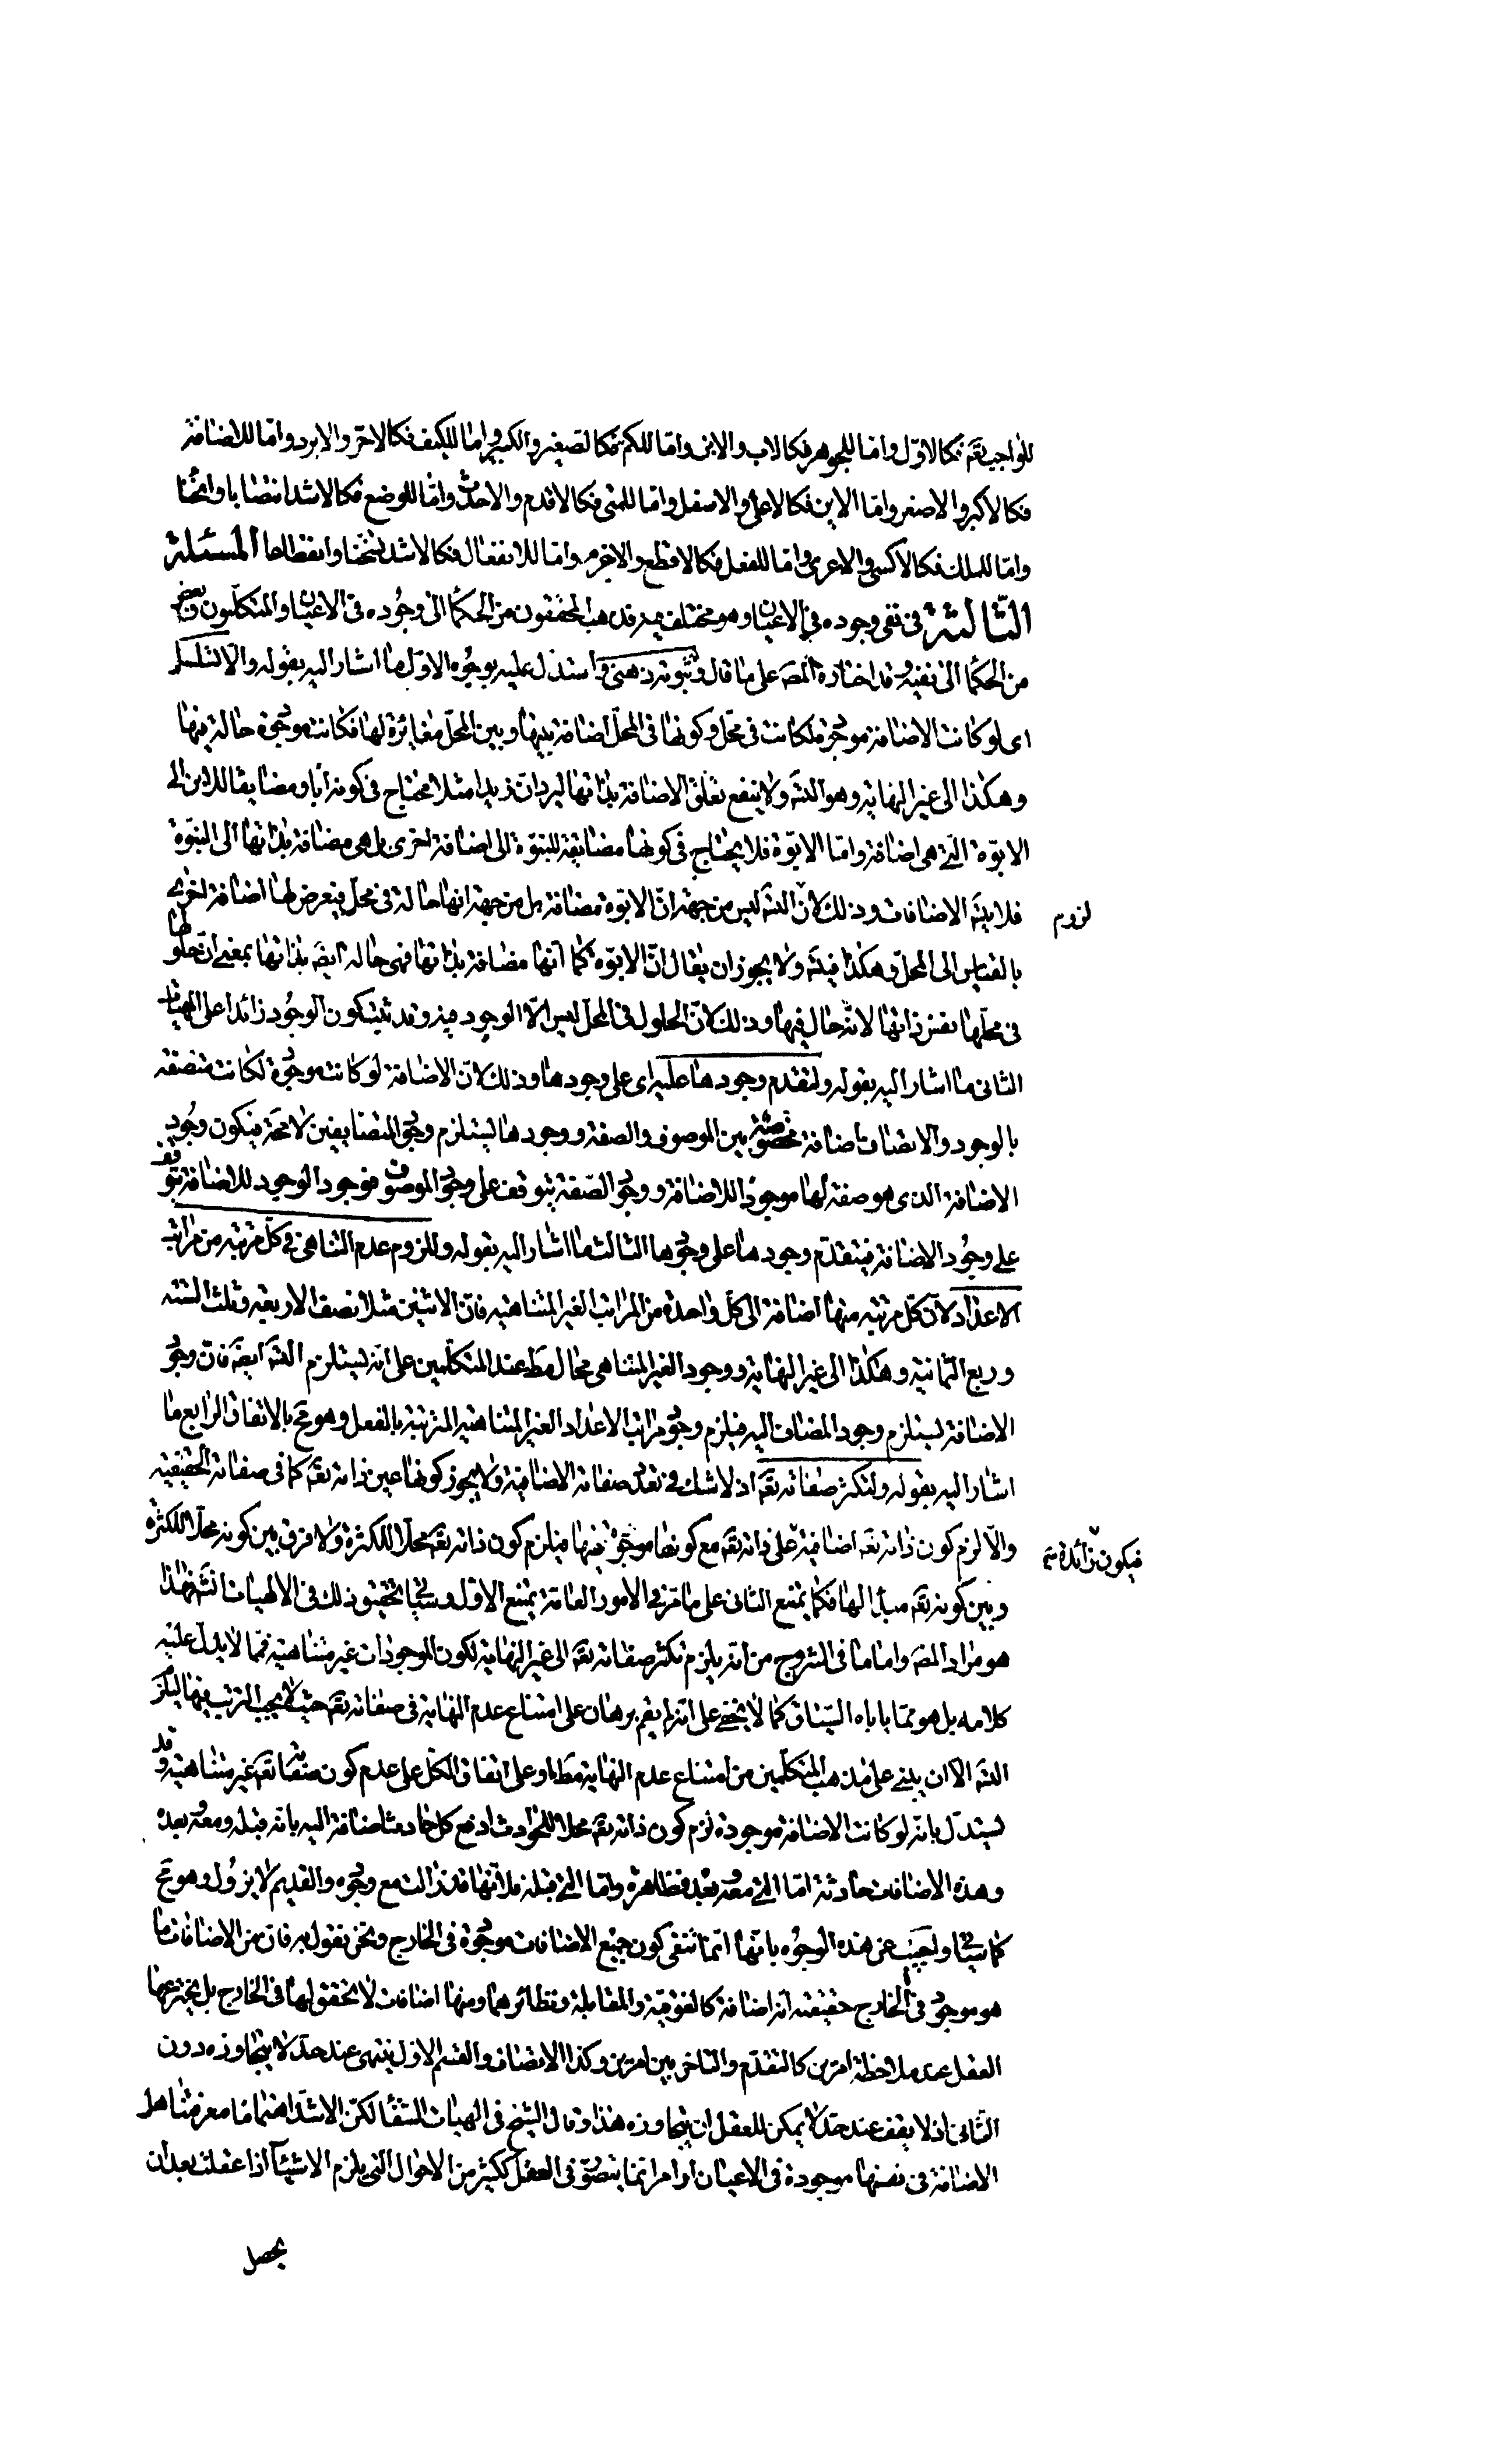 للواجب تعّہ فكالاوّل وامّا للجوهر فكالاب والابن وامّا للكم فكالصغير والكبير وامّا للكيف فكالاحرّ والابرد وامّا للاضافة
فكالاكبر والاصغر وامّا الاين فكالاعلى والاسفل وامّا للمتى فكالاقدم والاحدث وامّا للوضع فكالاشد انتصابا وانحناءً
وامّا للملك فكالاكسى والاعرى وامّا للفعل فكالاقطع والاخرم وامّا للانفعال فكالاشد تسخنا وانقطاعا المسئلة
الثالثة فى نفى وجوده فى الاعيان وهو مختلف فيه فذهب المحققون من الحكما الى وجوده فى الاعيان والمتكلّمون وبعض
من الحكما الى نفيه وقد اختاره المصہ على ما قال وثبوته ذهنى واستدل عليه بوجوه الاوّل ما اشار اليه بقوله والّا لتسلسل
اى لو كانت الاضافة موجودة لكانت فى محلّ وكونها فى المحلّ اضافة بينها وبين المحلّ مغايرة لها فكانت موجودة حالة فيها
وهكذا الى غير النهاية وهو التسہ ولا ينفع تعلق الاضافة بذاتها ليرد ان زيدا مثلا محتاج فى كونه أبا ومضايفا للابن الى
الابوّة التى هى اضافة وامّا الابوّة فلا يحتاج فى كونها مضايفة للبنوّة الى اضافة اخرى بل هى مضافة بذاتها الى البنوّة
فلا يتسہ الاضافات وذلك لانّ التسہ ليس من جهة انّ الابوّة مضافة بل من جهة انها حالة فى محلّ فيعرض لها اضافة اخرى
لزوم
بالقياس الى المحلّ وهكذا فيتسہ ولا يجوز ان يقال انّ الابوّه كما انّها مضافة بذاتها فهى حالة ايضہ بذاتها بمعنى انّ حلولها
فى محلّها نفس ذاتها لانه حال فيها وذلك لانّ الحلول فى المحلّ ليس الّا الوجود فيه وقد ثبت كون الوجود زائدا على المهيات
الثانى ما اشار اليه بقوله ولتقدم وجودها عليه اى على وجودها وذلك لانّ الاضافة لو كانت موجودة لكانت متصفة
بالوجود والاتصاف اضافة مخصوصة بين الموصوف والصفة ووجودها يستلزم وجود المتضايفين لا محة فيكون وجود
الاضافة الذى هو صفة لها موجودا للاضافة ووجود الصّفة يتوقف على وجود الموصوف فوجود الوجود للاضافة يتوقف
على وجود الاضافة فيتقدّم وجودها على وجودها الثالث ما اشار اليه بقوله وللزوم عدم التناهى فى كلّ مرتبة من مراتب
الاعداد لانّ كلّ مرتبة منها اضافة الى كلّ واحدة من المراتب الغير المتناهية فانّ الاثنين مثلا نصف الاربعة وثلث الستة
وربع الثمانية وهكذا الى غير النهاية ووجود الغير المتناهى محال مطہ عند المتكلّمين على انّه يستلزم التسہ ايضہ فان وجود
الاضافة يستلزم وجود المضاف اليه فيلزم وجود مراتب الاعداد الغير المتناهية المترتبة بالفعل وهو مح بالاتفاق الرابع ما
اشار اليه بقوله ولتكثر صفاته تعہ اذ لا شك فى تعدّد صفاته الاضافية ولا يجوز كونها عين ذاته تعہ كما فى صفاته الحقيقية
والّا لزم كون ذاته تعہ اضافية على ذاته تعہ مع كونها موجودة فيها فيلزم كون ذاته تعہ محلّا للكثرة ولا فرق بين كونه محلّا للكثرة
فيكون زائدة
وبين كونه تعہ مبدأ لها فكما يمتنع الثانى على ما مرّ فى الامور العامّة يمتنع الاوّل وسيجيء تحقيق ذلك فى الالهيات انشہ فهذا
هو مراد المصہ واما ما فى الشروح من انه يلزم تكثر صفاته تعہ الى غير النهاية لكون الموجودات غير متناهية فمّما لا يدلّ عليه
كلامه بل هو ممّا ياباه السّياق كما لا يخفى على انّه لم يقم برهان على امتناع عدم النهاية فى صفاته تعہ حيث لا يجب الترتب فيها ليلزم
التسہ الّا ان يبنى على مذهب المتكلّمين من امتناع عدم النهاية مطہ او على اتفاق الكلّ على عدم كون صفاته تعہ غير متناهية وقد
يستدلّ بانّه لو كانت الاضافة موجودة لزم كون ذاته تعہ محلا للحوادث اذ مع كل حادث اضافة اليه بانّه قبله ومعه وبعده
وهذه الاضافات حادثة امّا التى معه وبعده فظاهرة وامّا التى قبله فلانّها قد زالت مع وجوده والقديم لا يزول وهو مح
كما سيأتى واجيب عن هذه الوجوه بانّها انّما تنفى كون جميع الاضافات موجودة فى الخارج ونحن نقول به فانّ من الاضافات ما
هو موجود فى الخارج حقيقته انّه اضافة كالفوقيّة والمقابلة ونظائرهما ومنها اضافات لا تحقق لها فى الخارج بل يخترعها
العقل عند ملاحظة امرين كالتقدّم والتاخر بين امرين وكذا الاتصاف والقسم الاوّل ينتهى عند حدّ لا يتجاوزه دون
الثانى اذ لا يقف عند حدّ لا يمكن للعقل ان يتجاوزه هذا وقال الشيخ فى الهيات الشفا لكن الاشدّ اهتماما معرفتنا هل
الاضافة فى نفسها موجودة فى الاعيان او امر انما يتصوّر فى العقل ككثير من الاحوال التى يلزم الاشياء اذا عقلت بعد ان
يحصل